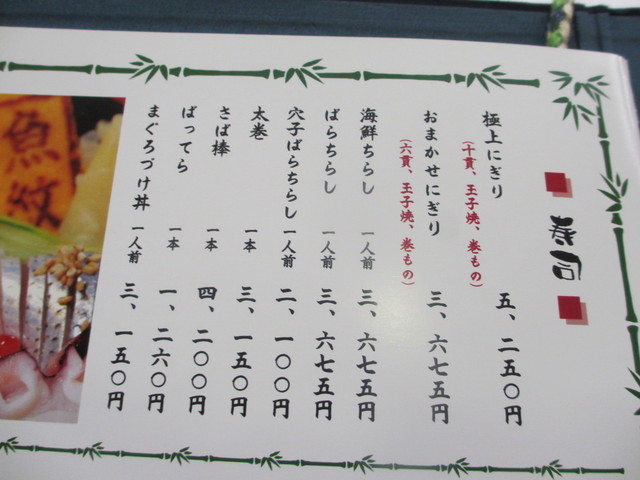 寿司
極上にぎり 五、二五〇円
(十貫、玉子焼、巻もの)
おまかせにぎり 三、六七五円
(六貫、玉子焼、巻もの)
海鮮ちらし 一人前 三、六七五円
ばらちらし 一人前 三、六七五円
穴子ばらちらし 一人前 二、一〇〇円
太巻 一本 三、一五〇円
さば棒 一本 四、二〇〇円
ばってら 一本 一、二六〇円
まぐろづけ丼 一人前 三、一五〇円
魚紋